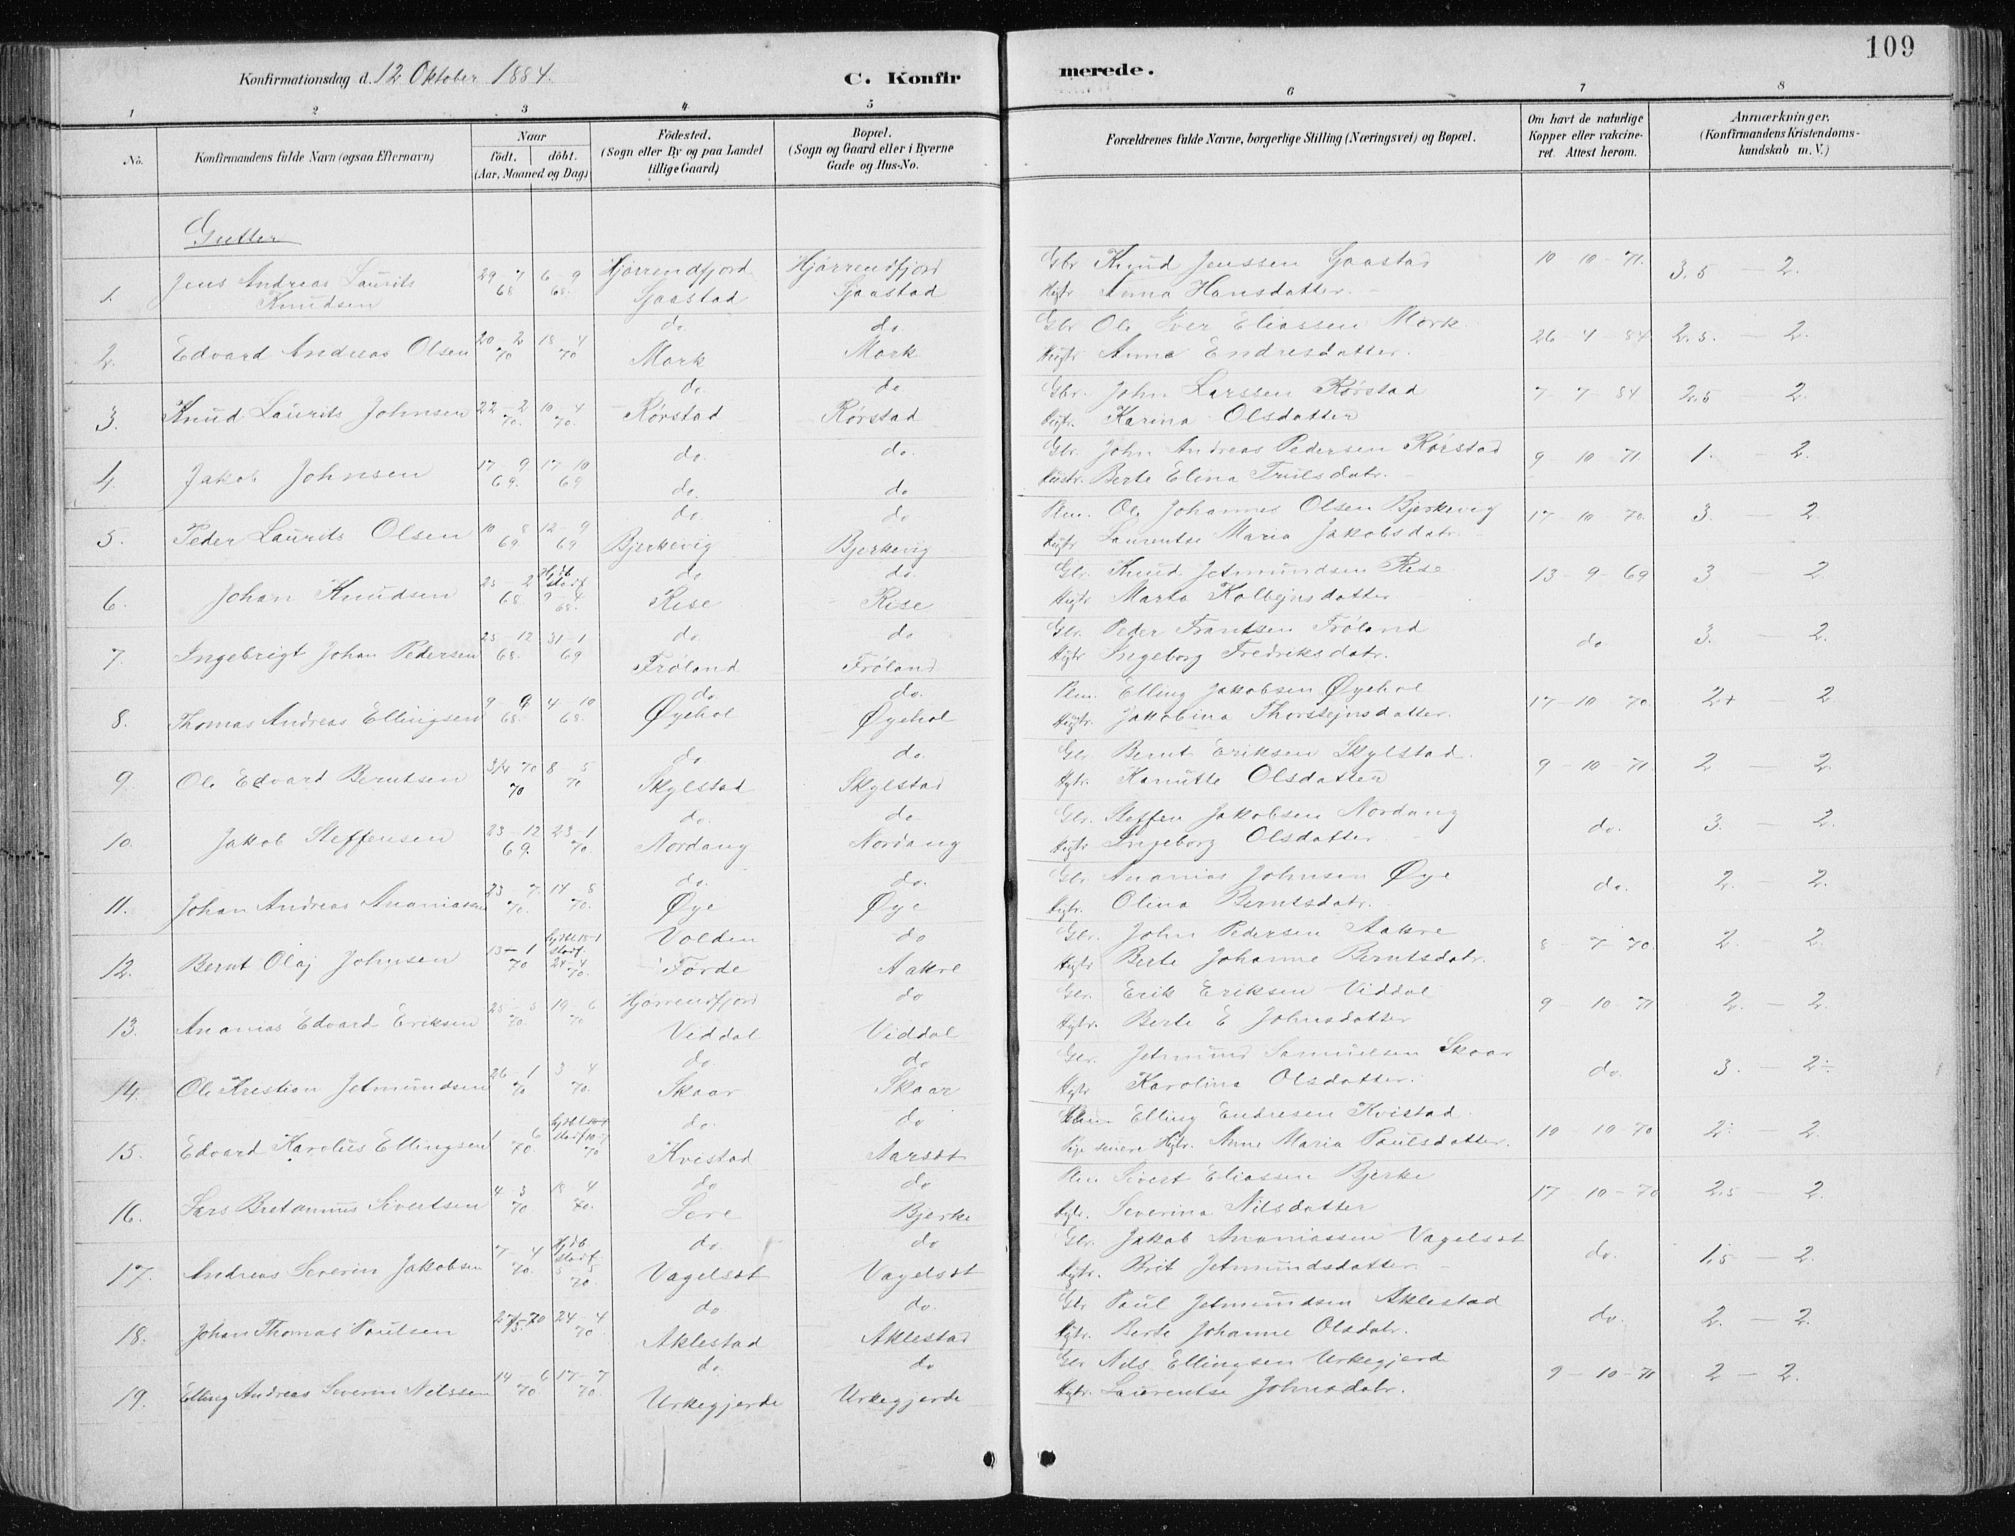 109
Konfirmationsdag d. 12 Oktober 1884.
C. Konfirmerede.
1 2 3 4 5 6 7 8
No. Konfirmandens fulde Navn (ogsaa Efternavn) Naar födt. döbt. (Aar, Maaned og Dag) Födested. (Sogn eller By og paa Landet tillige Gaard) Bopæl. (Sogn og Gaard eller i Byerne Gade og Hus-No. Forældrenes fulde Navne, borgerlige Stilling (Næringsvei) og Bopæl. Om havt de naturlige Kopper eller vakcineret. Attest herom. Anmærkninger. (Konfirmandens Kristendomskundskab m. V.)
Gutter
1. Jens Andreas Laurits Knudsen 29-7 68 6-9 68. Hjörrendfjord Sjaastad Hjörrendfjord Sjaastad Gbr Knud Jenssen Sjaastad Hgtr Anna Hansdatter. 10-10-71. 3.5 - 2.
2. Edvard Andreas Olsen 20-2 70 18-4 70 do Mork do. Mork Gbr Ole Iver Eliassen Mork. Hgtr Anna Endresdatter. 26-4-84 2.5. - 2.
3. Knud Laurits Johnsen 22-2 70. 10-4 70. do Rörstad do Rörstad Gbr. John Larssen Rörstad Hgtr. Karina Olsdatter 7-7-84 2.5 - 2.
4. Jakob Johnsen 17-9 69. 17-10 69 do. do. do. do Gbr. John Andreas Pedersen Rörstad Hustr. Berte Elina Truls datr. 9-10-71. 1. - 2.
5. Peder Laurits Olsen 10-8 69 12-9 69 do Bjerkevig do Bjerkevig Ole Johannes Olsen Bjerkevig Hgtr Laurentse Maria Jakobsdatr. 17-10-70. 3. - 2.
6. Johan Knudsen 25-2 68. Hjdb stadf 9-4 68. do Rise do. Rise Gbr. Knud Jetmundsen Rise Hgtr Marta Kolbejnsdatter 13-9-69 3 - 2
7. Ingebrigt Johan Pedersen 25-12 68. 31-1 69 do Fröland do Fröland Gbr. Peder Frantsen Fröland Hgtr Ingeborg Fredriksdatr. do 3. - 2.
8. Thomas Andreas Ellingsen 9 9 68. 4-10 68. do Øyehol do. Øyehol Elling Jakobsen Øyehol Hgtr. Jakobina Thorstejnsdatter. 17-10-70. 2+ 2.
9. Ole Edvard Berntsen 3/4 70 70 8-5 70 do Skylstad do Skylstad Gbr Bernt Eriksen Skylstad. Hgtr. Kanutte Olsdatter 9-10-71. 2 - 2.
10. Jakob Steffensen 23-12 69. 23-1 70. do. Nordang do Nordang Gbr. Steffen Jakobsen Nordang Hgtr Ingeborg Olsdatter do. 3. - 2.
11. Johan Andreas Ananiassen 23 7. 70. 14 8 70. do. Øye do. Øye Gbr Ananias Johnsen Øye Hgtr. Olina Berntsdatr. do. 2. - 2.
12. Bernt Olaj Johnsen 13-1 70 24-4 70. Volden Förde do Aakre Gbr. John Pedersen Aakre Hgtr Berte Johanne Berntsdatr. 8-7-70. 2. - 2.
13. Ananias Edvard Eriksen 25-5 70. 19-6 70 Hjörrendfjord Viddal do Viddal Gbr. Erik Eriksen Viddal Hgtr. Berte E Johnsdatter 9-10-71 2. - 2.
14. Ole Kristian Jetmundsen 26 1 70 3 4 70. do Skaar do Skaar Gbr. Jetmund Samuelsen Skaar Hgtr Karolina Olsdatter. do. 3. - 2÷
15. Edvard Karolius Ellingsen 1-6 70. 70 do. Kvistad do Aarsöt Elling Endresen Kvistad. Hgtr. Anne Maria Paulsdatter. 10-10-70 2. - 2.
16. Lars Bretanius Sivertsen 4-3 70. 18-4 70. do Lere do Bjerke Sivert Eliassen Bjerke Hgtr. Severina Nilsdatter 17-10-70 2.5 - 2.
17. Andreas Severin Jakobsen 7-4 70. Hjdb stadf 70. do. Vagelsöt do Vagelsöt Gbr. Jakob Ananiassen Vagelsöt Hgtr. Brit Jetmundsdatter. do. 1.5 - 2.
18. Johan Thomas Paulsen 24-4 70. do. Aklestad do. Aklestad Gbr Paul Jetmundsen Aklestad Hgtr. Berte Johanne Olsdatr. do. 2. - 2.
19. Elling Andreas Severin Nilssen 14-6 70 17-7 70. do. Urkegjerde do Urkegjerde Gbr Nils Ellingsen Urkegjerde Hgtr. Laurentse Johnsdatr. 9-10-71 2 - 2.